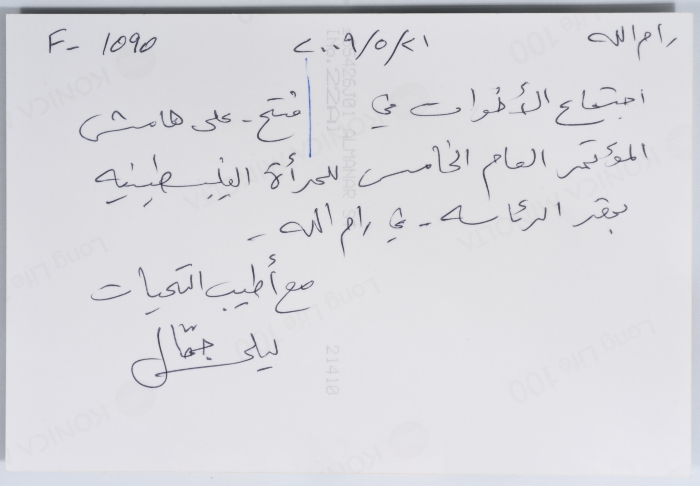 رام الله ٢٠٠٩/٥/٢١ F- 1090
اجتماع الأخوات في فتح - على هامش
المؤتمر العام الخامس للمرأة الفلسطينية
بمقر الرئاسة - في رام الله -
مع أطيب التحيات
ليلى جمّال
21410